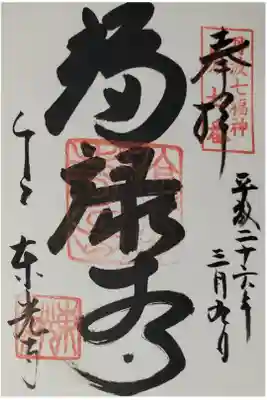 奉拝
丹波七福神
平成二十六年
三月九日
福禄寿
東光寺